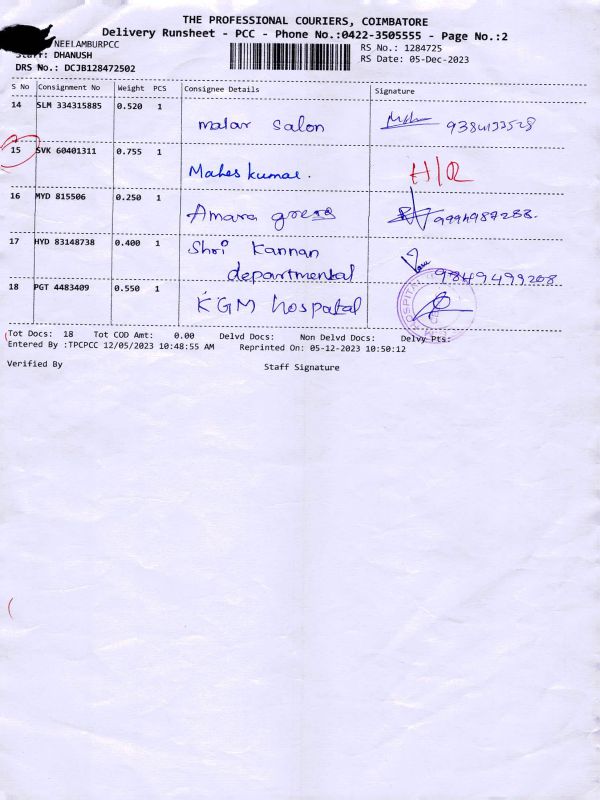 THE PROFESSIONAL COURIERS, COIMBATORE
Delivery Runsheet - PCC - Phone No.:0422-3505555 - Page No.:2
NEELAMBURPCC
RS No.: 1284725
Staff: DHANUSH
RS Date: 05-Dec-2023
DRS No.: DCJB128472502
S No Consignment No Weight PCS Consignee Details Signature
14 SLM 334315885 0.520 1
malar salon 9384132528
15 SVK 60401311 0.755 1
Mahes kumar. H/R
16 MYD 815506 0.250 1
Amara 9994987288.
17 HYD 83148738 0.400 1
Shri Kannan
departmental 97849499208
18 PGT 4483409 0.550 1
KGM hospatal
Tot Docs: 18 Tot COD Amt: 0.00 Delvd Docs: Non Delvd Docs: Delvy Pts:
Entered By :TPCPCC 12/05/2023 10:48:55 AM Reprinted On: 05-12-2023 10:50:12
Verified By Staff Signature